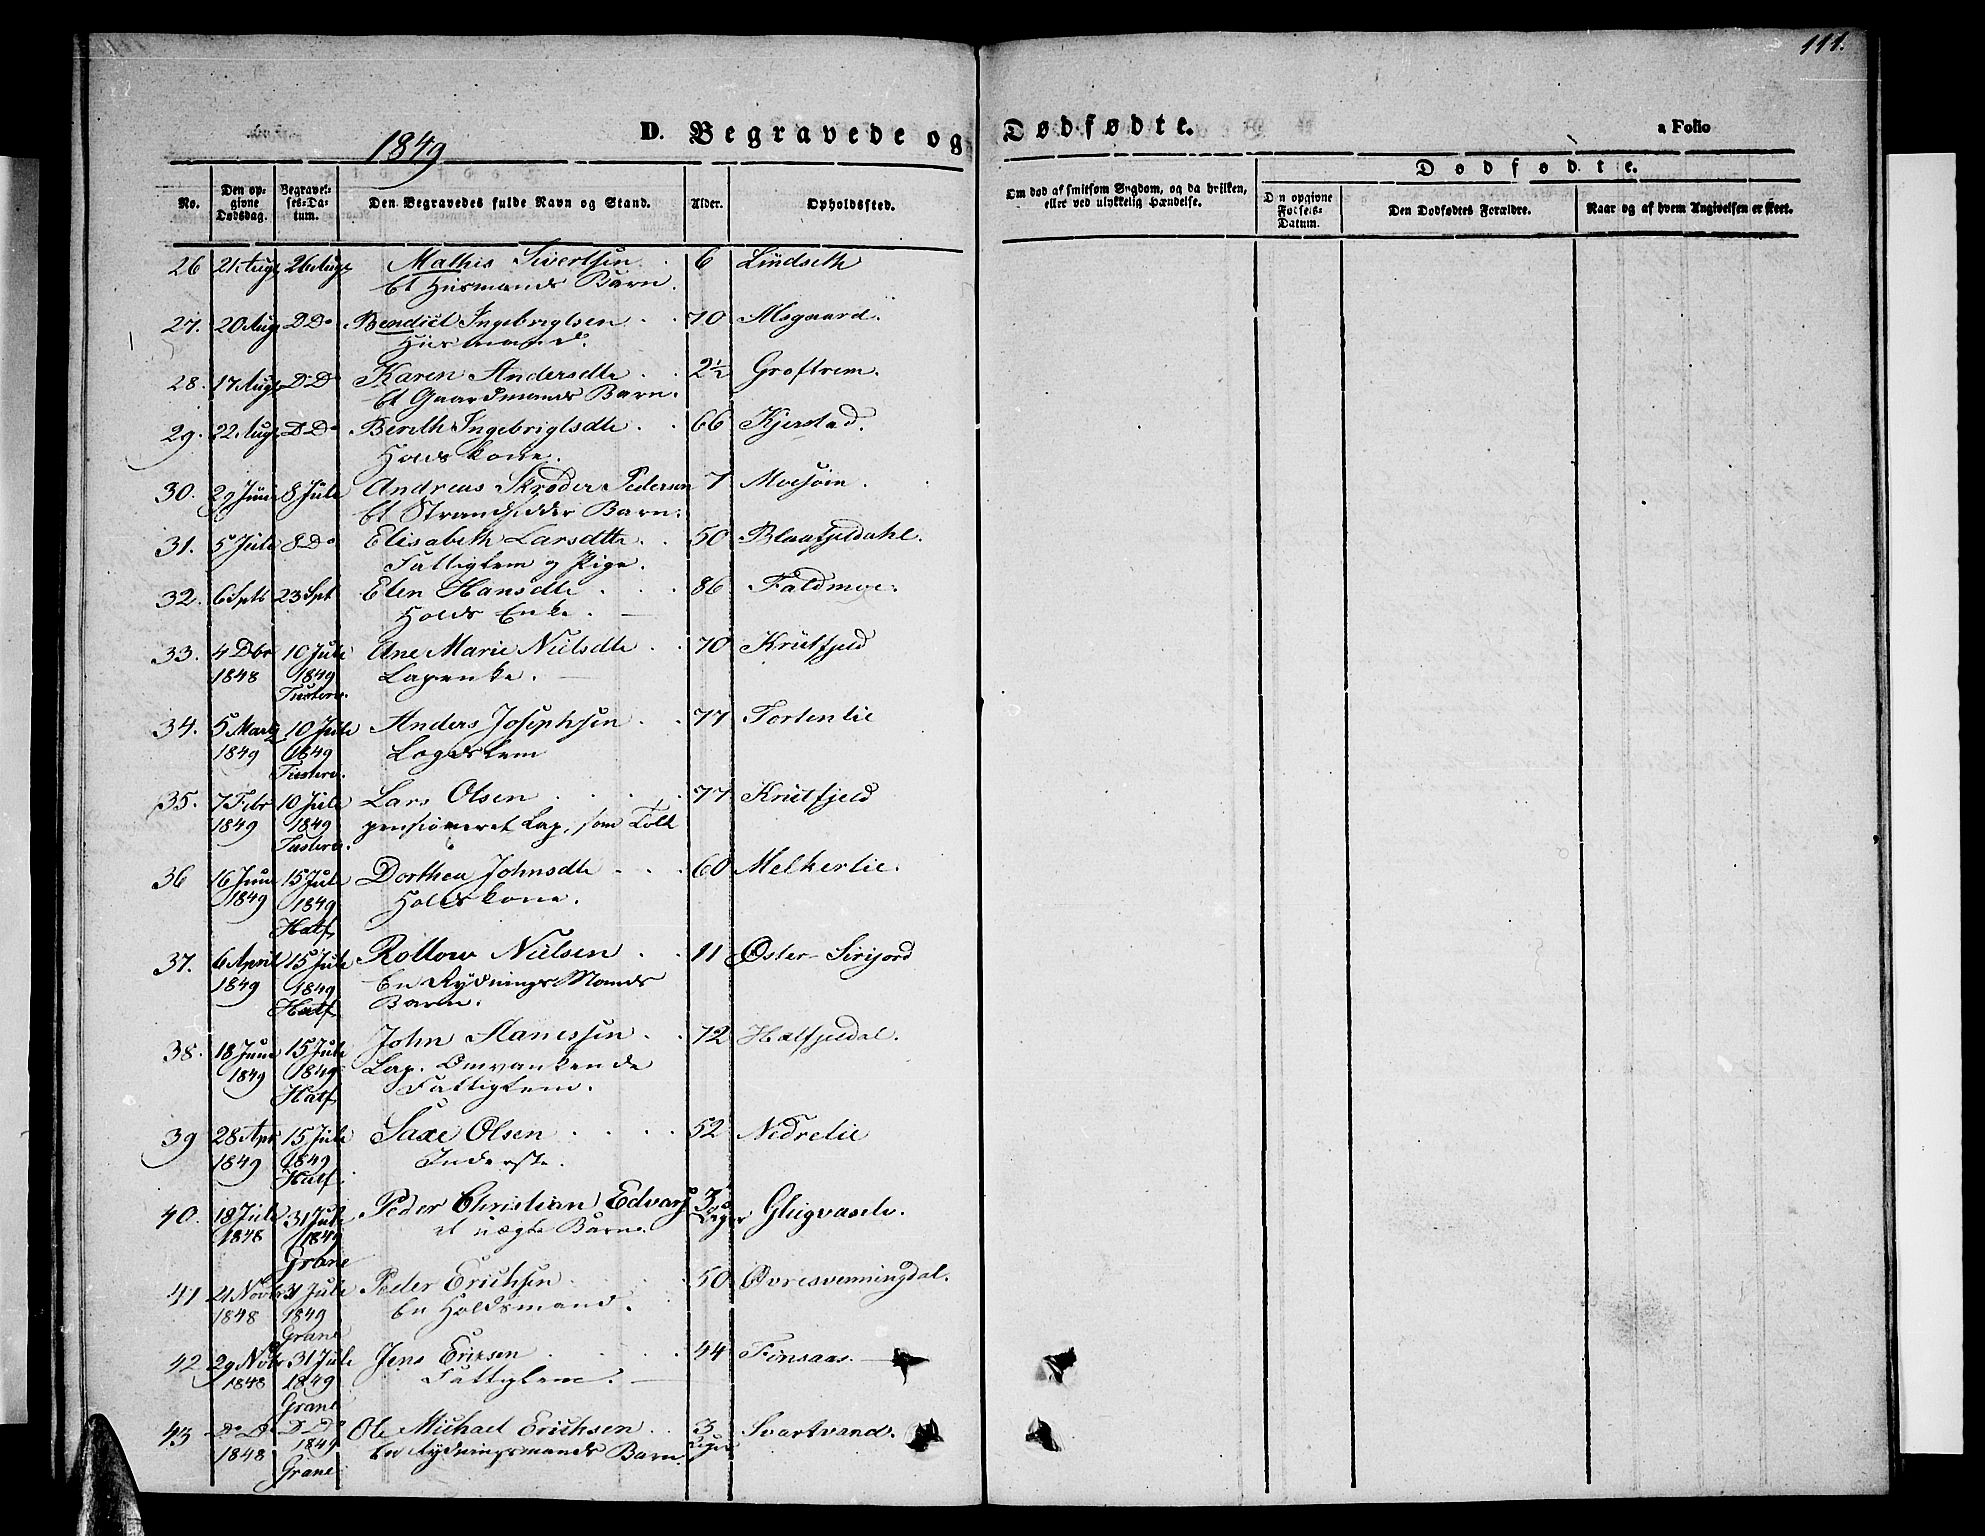 111.
1849
D. Begravede og Dødfødte.
a Folio
No.
Den opgivne Dødsdag.
Begravelses-Datum.
Den Begravedes fulde Navn og Stand.
Alder.
Opholdssted.
Om død af smitsom Sygdom, og da hvilken, eller ved ulykkelig Hændelse.
Dødfødte.
Den opgivne Fødsels-Datum.
Den Dødfødtes Forældre.
Naar og af hvem Angivelsen er skeet.
26 21 Aug 26 Aug Mathis Sivertsen 6 Lindseth
Et Huusmands Barn.
27. 20 Aug D Do Bendict Ingebrigtsen 70 Alsgaard.
Huusmand.
28. 17 Aug D D Karen Andersdtr 2½ Groftrem.
Et Gaardmands Barn.
29. 22 Aug D Do Bereth Ingebrigtsdtr 66 Kjerstad.
Holds kone.
30. 29 Juni 8 Juli Andreas Skrøder Pedersen 7 Mosjøin.
Et Strandsidder Barn.
31. 5 Juli 8 Do Elisabeth Larsdtr 50 Blaafjeldahl.
Fattiglem og Pige.
32. 6 Septb 23 Sept Elen Hansdtr 86 Faldmoe.
Holds Enke.
33. 4 Dbr 10 Juli Ane Marie Nielsdtr 70 Krutfjeld
1848 1849 Lapenke.
Tustere.
34. 5 Marz 10 Juli Anders Josephsen 77 Tortenlie
1849 1849 Logdslem
Tustere.
35. 7 Febr 10 Juli Lars Olsen 77 Krutfjeld
1849 1849 pensioneret Lap, som Tolk
Tustere.
36 16 Juni 15 Juli Dorthea Johnsdtr 60 Melkerlie.
1849 1849 Holdskone.
Hatf.
37. 6 April 15 Juli Rollow Nielsen 11 Øster-Sirijord
1849 1849 En Rydnings Mands
Hatf Barn.
38. 18 Juni 15 Juli John Hanessen 72 Hatfjeldal.
1849 1849 Lap. Omvankende
Hatf Fattiglem.
39 28 Apr 15 Juli Saxe Olsen 52 Nedrelie
1849 1849 Inderste.
Hatf.
40. 18 Juli 31 Juli Peder Christian Edvars 3 Glugvaselv.
1848 1849 et uægte Barn. Uger
Grane
41 21 Novb 31 Juli Peder Erichsen 50 Øvresvenningdal.
1848 1849 En Holdsmand.
Grane
42 29 Nobr 31 Juli Jens Ericsen 44 Finsaas.
1848 1849 Fattiglem.
Grane
43 Do D D Do Ole Michael Erichsen 3 Svartvand.
1848 1849 En Rydningsmands Barn. Uger
Grane